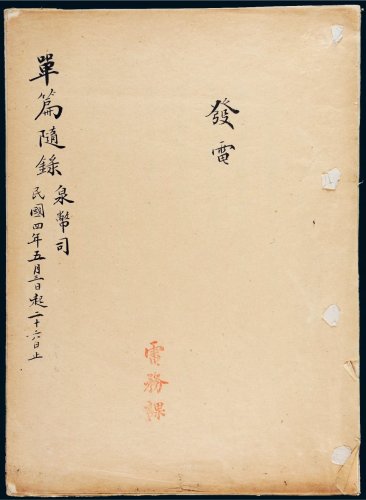 發電
電務課
單篇隨錄 泉幣司
民國四年五月三日起二十六日止